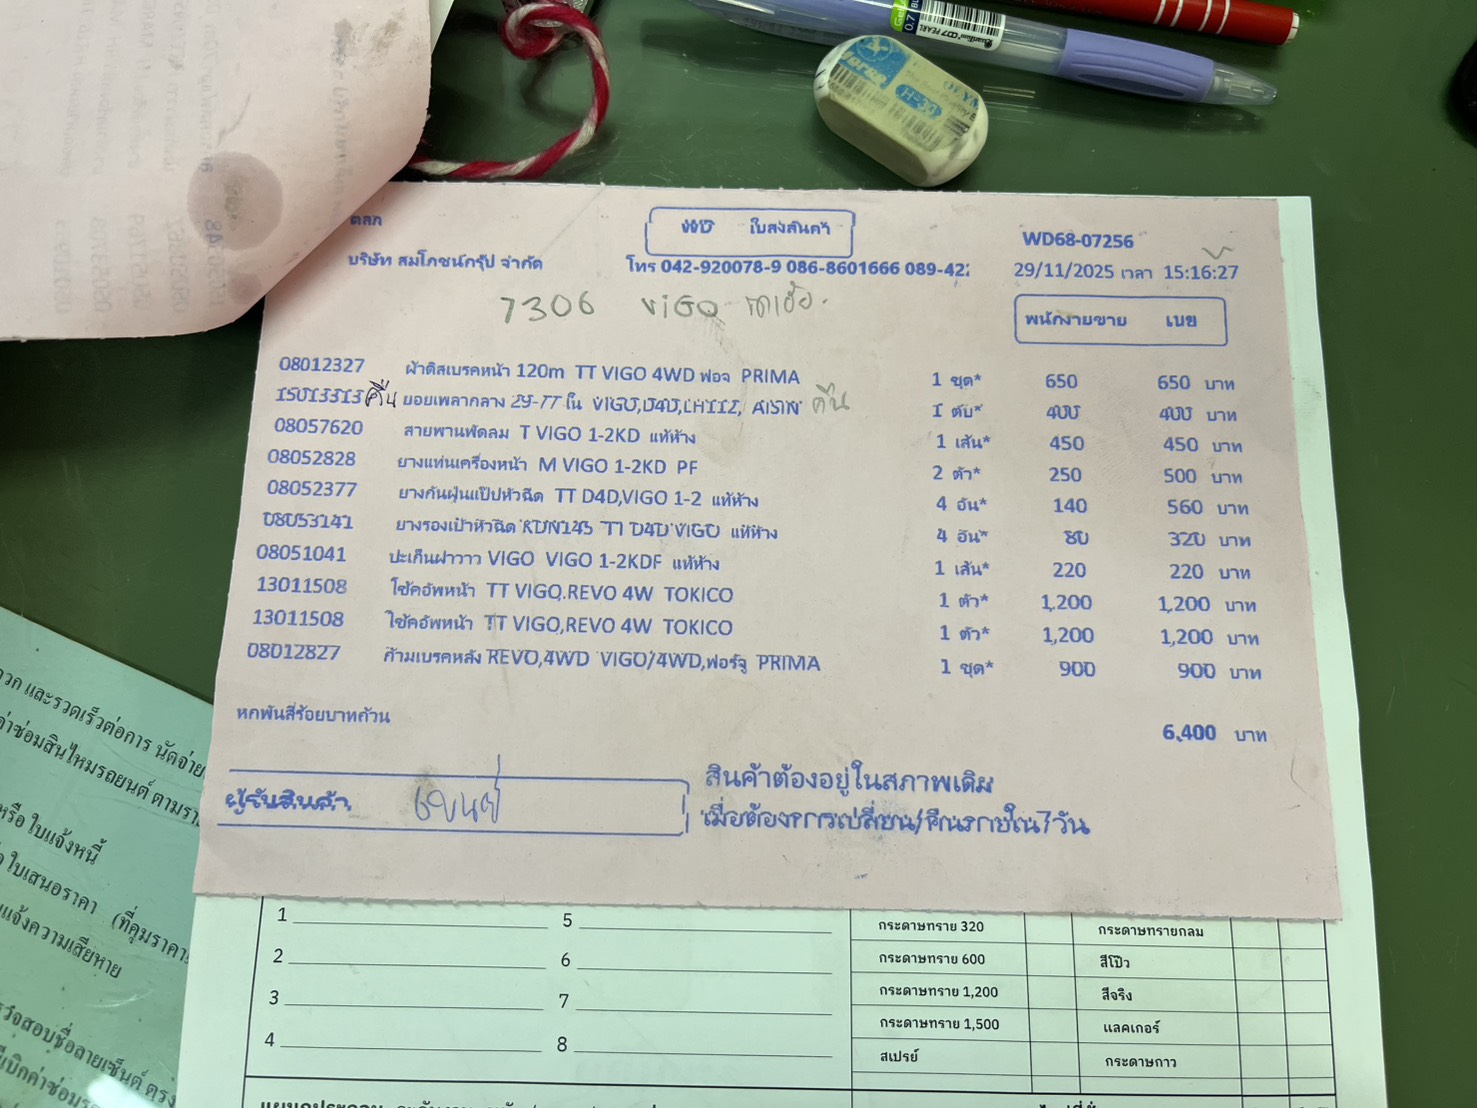 ตลก
WD ใบส่งสินค้า
WD68-07256
บริษัท สมโภชน์กรุ๊ป จำกัด
โทร 042-920078-9 086-8601666 089-422
29/11/2025 เวลา 15:16:27
7306 ViGO
พนักงานขาย เบย
08012327 ผ้าดิสเบรคหน้า 120m TT VIGO 4WD ฟอจ PRIMA 1 ชุด* 650 650 บาท
15013313 คืน ยอยเพลากลาง 29-TT ใน VIGO,D4D,LH112, AISIN คืน 1 ตับ* 400 400 บาท
08057620 สายพานพัดลม T VIGO 1-2KD แท้ห้าง 1 เส้น* 450 450 บาท
08052828 ยางแท่นเครื่องหน้า M VIGO 1-2KD PF 2 ตัว* 250 500 บาท
08052377 ยางกันฝุ่นแป๊ปหัวฉีด TT D4D,VIGO 1-2 แท้ห้าง 4 อัน* 140 560 บาท
08053141 ยางรองเบ้าหัวฉีด KDN145 TT D4D VIGO แท้ห้าง 4 อัน* 80 320 บาท
08051041 ปะเก็นฝาวาว VIGO VIGO 1-2KDF แท้ห้าง 1 เส้น* 220 220 บาท
13011508 โช้คอัพหน้า TT VIGO,REVO 4W TOKICO 1 ตัว* 1,200 1,200 บาท
13011508 โช้คอัพหน้า TT VIGO,REVO 4W TOKICO 1 ตัว* 1,200 1,200 บาท
08012827 ก้ามเบรคหลัง REVO,4WD VIGO/4WD,ฟอร์จู PRIMA 1 ชุด* 900 900 บาท
หกพันสี่ร้อยบาทถ้วน 6,400 บาท
ผู้รับสินค้า
สินค้าต้องอยู่ในสภาพเดิม
เมื่อต้องการเปลี่ยน/คืนภายใน7วัน
1 5 กระดาษทราย 320 กระดาษทรายกลม
2 6 กระดาษทราย 600 สีโป๊ว
3 7 กระดาษทราย 1,200 สีจริง
4 8 กระดาษทราย 1,500 แลคเกอร์
สเปรย์ กระดาษกาว
และรวดเร็วต่อการ นัดจ่าย
ค่าซ่อมสินไหมรถยนต์ ตามรา
หรือ ใบแจ้งหนี้
ใบเสนอราคา (ที่คุมราคา
แจ้งความเสียหาย